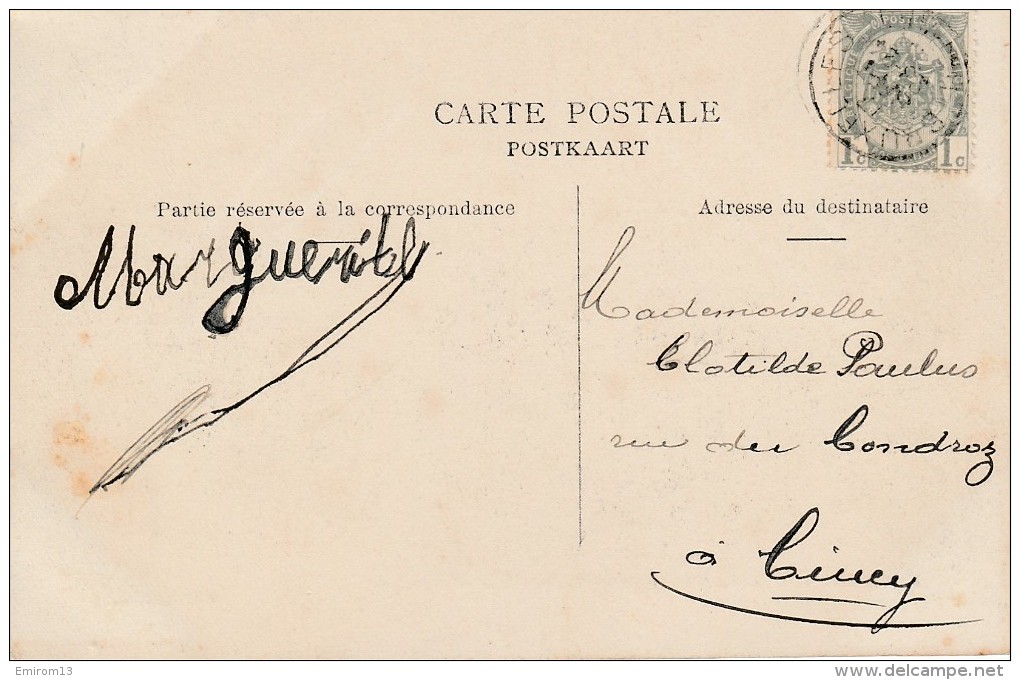 CARTE POSTALE
POSTKAART
Partie réservée à la correspondance
Marguerite
Adresse du destinataire
Mademoiselle
Clotilde Paulus
rue du Condroz
à Ciney
POSTES
1c 1c
Emirom13
delcampe.net